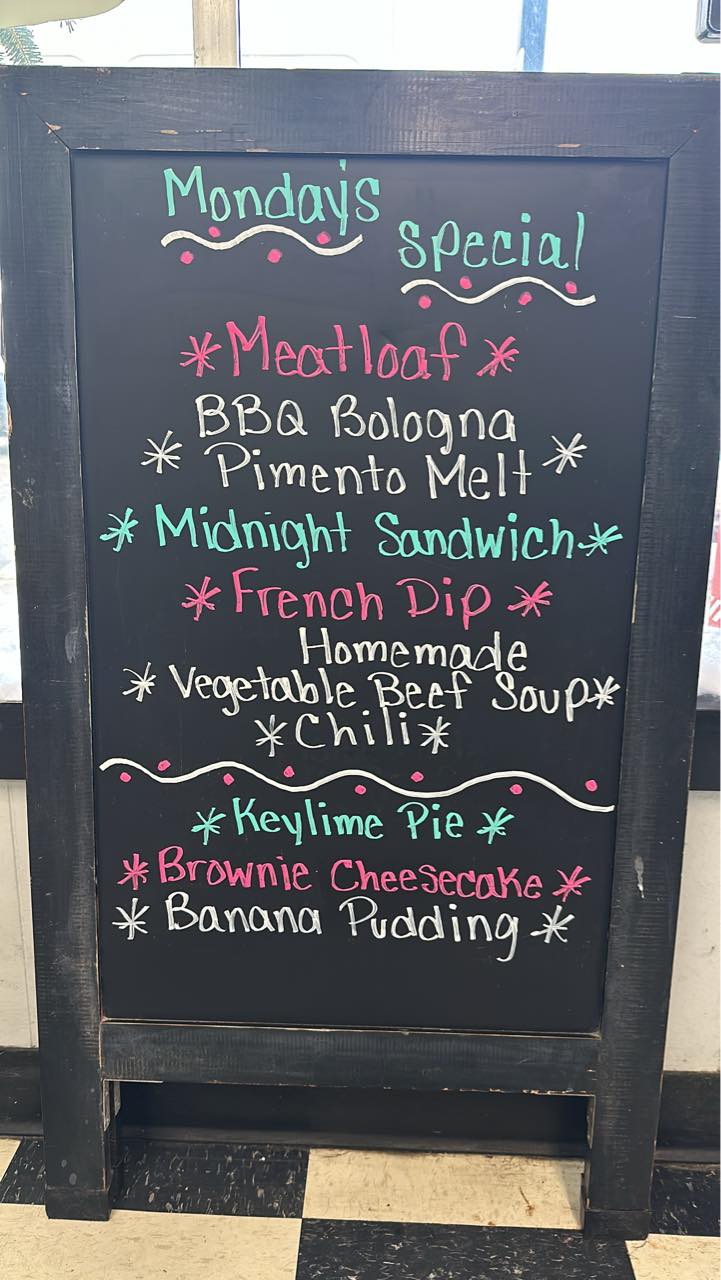 Monday's
special
*Meatloaf*
BBQ Bologna
* Pimento Melt *
* Midnight Sandwich*
*French Dip*
Homemade
*Vegetable Beef Soup*
*Chili*
*Keylime Pie*
*Brownie Cheesecake*
*Banana Pudding*